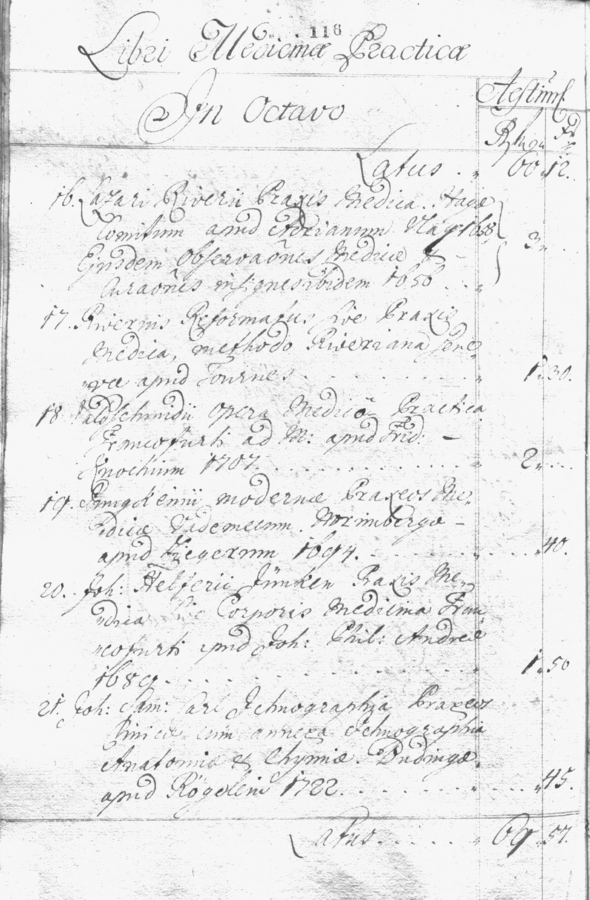 118
Libri Medicinæ Practicæ
In Octavo
Aestim.
Latus . 60 12.
16. Lazari Riverii Praxis Medica. Hagæ
Comitum apud Adrianum Vlaq
Ejusdem Observaões Medicæ &
insignes ibidem 1656 3
17. Riverius Reformatus sive Praxis
Medica, methodo Riveriana Gene
væ apud Tournes . . . . . . 1. 30.
18. Opera Medico Practica
Francofurti ad M: apud Frid: –
Knochium 1707. . . . . . . . . 2. . . .
19. modernæ Praxeos Me-
dicæ Vademecum. Norimbergæ –
apud Ziegerum 1694. . . . . . . 40.
20. Joh: Helferici Jünken Praxis Me-
dica sive Corporis Medicina Fran
cofurti apud Joh: Phil: Andreæ
1689. . . . . . . . . 1. 50
21. Joh: Sam: Carl Ichnographia Praxeos
Clinicæ cum annexa Ichnographia
Anatomiæ & Chymiæ. Budingæ
apud Regelein 1722. . . . . . . 45.
Latus . . . . . 69. 57.